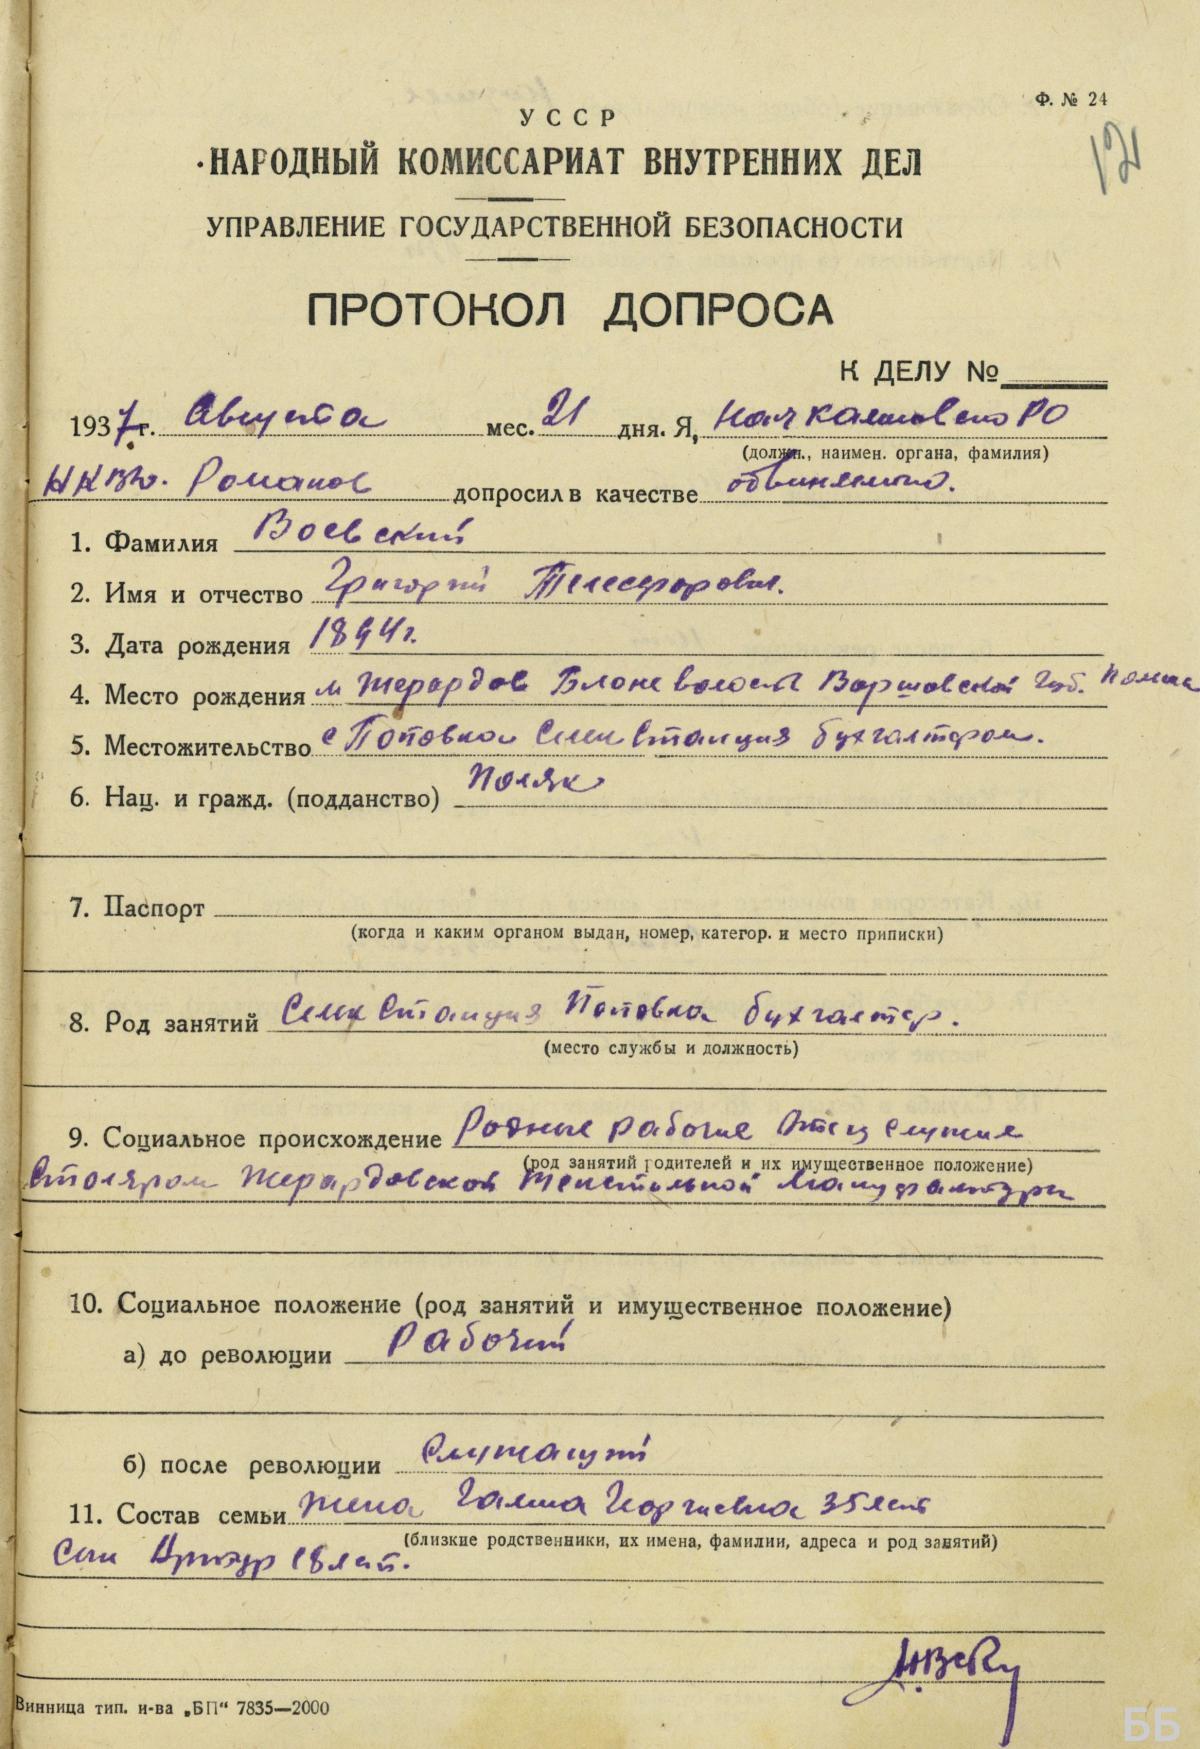 Ф. № 24
УССР
121
НАРОДНЫЙ КОМИССАРИАТ ВНУТРЕННИХ ДЕЛ
УПРАВЛЕНИЕ ГОСУДАРСТВЕННОЙ БЕЗОПАСНОСТИ
ПРОТОКОЛ ДОПРОСА
К ДЕЛУ №
1937 г. Августа мес. 21 дня. Я, Нач РО
(должн., наимен. органа, фамилия)
НКВД. Романов допросил в качестве обвиняемого.
1. Фамилия Воевский
2. Имя и отчество Григорий Телесфорович.
3. Дата рождения 1894 г.
4. Место рождения м Жерардов Блоне волости Варшовской губ.
5. Местожительство с Поповка Семстанция бухгалтером.
6. Нац. и гражд. (подданство) Поляк
7. Паспорт
(когда и каким органом выдан, номер, категор. и место приписки)
8. Род занятий Станция Поповка бухгалтер.
(место службы и должность)
9. Социальное происхождение Родные рабочие Отец служил
(род занятий родителей и их имущественное положение)
Столяром Жерардовской Текстильной Мануфактуры
10. Социальное положение (род занятий и имущественное положение)
а) до революции Рабочий
б) после революции Служащий
11. Состав семьи жена Галина Георгиевна 35 лет
(близкие родственники, их имена, фамилии, адреса и род занятий)
Сын Артур 18 лет.
Винница тип. и-ва „БП“ 7835—2000
ББ